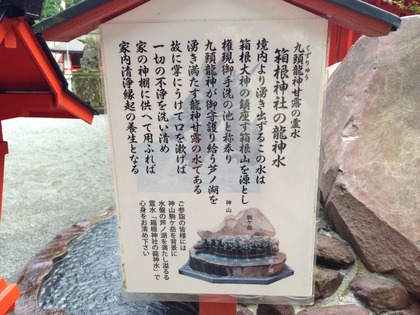 九頭龍神甘露の霊水
くずりゅう
箱根神社の龍神水
境内より湧き出するこの水は
箱根大神の鎮座す箱根山を源とし
権現御手洗の池と称奉り
九頭龍神が御守護り給う芦ノ湖を
湧き満たす龍神甘露の水である
故に掌にうけて口を漱げば
一切の不浄を洗い清め
家の神棚に供へて用ふれば
家内清浄縁起の養生となる
ご参詣の皆様には
神山駒ケ岳を背景に
水盤の芦ノ湖を満たし溢るる
霊水「箱根神社の龍神水」で
心身をお清め下さい
神山
駒ケ岳